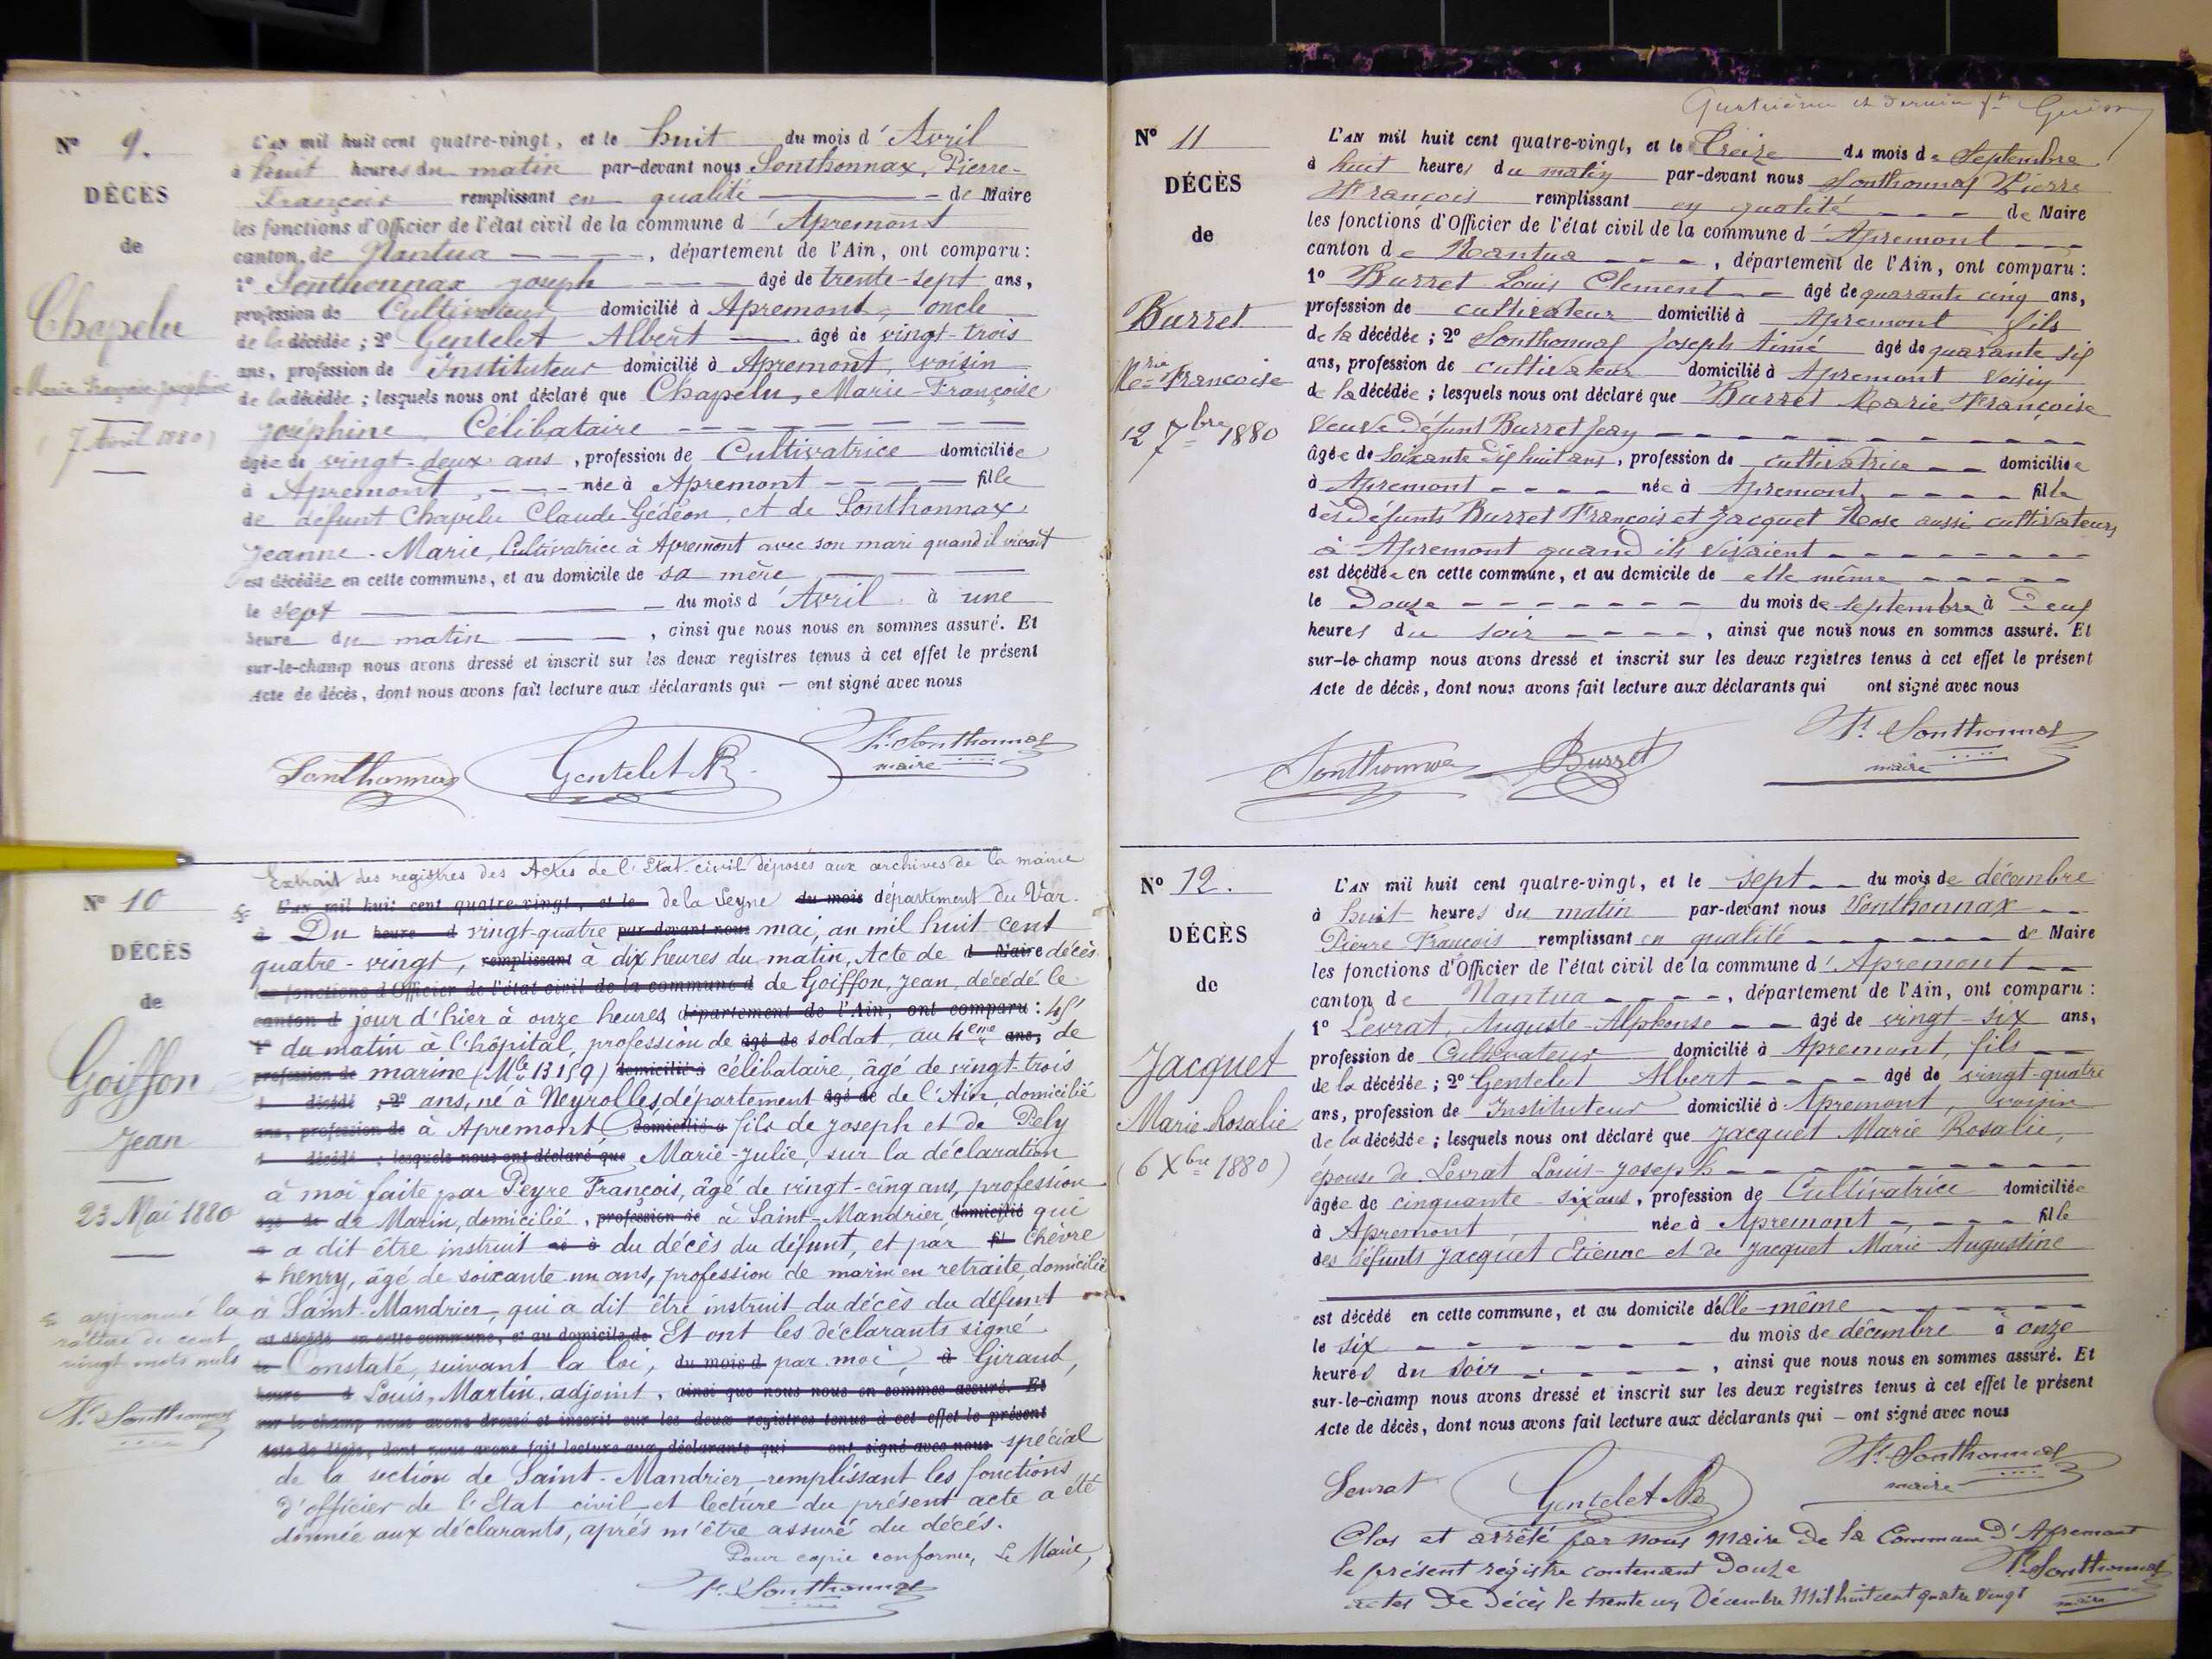 N° 9.
DÉCÈS
de
Chapelu
Marie Françoise Joséphine
(7 Avril 1880)
L'AN mil huit cent quatre-vingt, et le huit du mois d'Avril
à huit heures du matin par-devant nous Sonthonnax, Pierre-
François remplissant en qualité de Maire
les fonctions d'Officier de l'état civil de la commune d'Apremont
canton de Nantua, département de l'Ain, ont comparu :
1° Sonthonnax Joseph âgé de trente-sept ans,
profession de Cultivateur domicilié à Apremont, oncle
de la décédée ; 2° Gentelet Albert âgé de vingt-trois
ans, profession de Instituteur domicilié à Apremont, voisin
de la décédée ; lesquels nous ont déclaré que Chapelu, Marie-Françoise
Joséphine, Célibataire
âgée de vingt-deux ans, profession de Cultivatrice domiciliée
à Apremont, née à Apremont fille
de défunt Chapelu Claude-Gédéon, et de Sonthonnax
Jeanne-Marie, Cultivatrice à Apremont avec son mari quand il vivait
est décédée en cette commune, et au domicile de sa mère
le sept du mois d'Avril à une
heure du matin, ainsi que nous nous en sommes assuré. Et
sur-le-champ nous avons dressé et inscrit sur les deux registres tenus à cet effet le présent
Acte de décès, dont nous avons fait lecture aux déclarants qui — ont signé avec nous
Sonthonnax Gentelet Ab. Fs. Sonthonnax
maire
N° 10
DÉCÈS
de
Goiffon
Jean
23 Mai 1880
Extrait des registres des Actes de l'Etat-civil déposés aux archives de la mairie
L'AN mil huit cent quatre-vingt, et le de la Seyne du mois département du Var.
à Du heure d vingt-quatre par-devant nous mai, an mil huit cent
quatre-vingt, remplissant à dix heures du matin, Acte de d Maire décès
les fonctions d'Officier de l'état civil de la commune d de Goiffon, Jean, décédé le
canton d jour d'hier à onze heures département de l'Ain, ont comparu : 45'
1° du matin à l'hôpital, profession de âgé de soldat, au 4eme ans, de
profession de marine (Mle 13159) domicilié à célibataire, âgé de vingt-trois
d décédé ; 2° ans, né à Neyrolles, département âgé de de l'Ain, domicilié
ans, profession de à Apremont, domicilié à fils de Joseph et de Pely
d décédé ; lesquels nous ont déclaré que Marie-Julie, sur la déclaration
à moi faite par Peyre François, âgé de vingt-cinq ans, profession
âgé de de Marin, domicilié, profession de à Saint-Mandrier, domicilié qui
à a dit être instruit né à du décès du défunt, et par fil Chèvre
d henry, âgé de soixante un ans, profession de marin en retraite, domicilié
à Saint-Mandrier, qui a dit être instruit du décès du défunt
est décédé en cette commune, et au domicile de Et ont les déclarants signé
le Constaté, suivant la loi, du mois d par moi, à Giraud,
heure d Louis, Martin, adjoint, ainsi que nous nous en sommes assuré. Et
sur-le-champ nous avons dressé et inscrit sur les deux registres tenus à cet effet le présent
Acte de décès, dont nous avons fait lecture aux déclarants qui ont signé avec nous spécial
de la section de Saint-Mandrier remplissant les fonctions
d'officier de l'Etat civil et lecture du présent acte a été
donnée aux déclarants, après m'être assuré du décès.
Pour copie conforme, Le Maire,
Fs. Sonthonnax
approuvé la
rature de cent
vingt mots nuls
Fs. Sonthonnax
Quatrième et dernier ft
N° 11
DÉCÈS
de
Burret
Mrie Francoise
12 7bre 1880
L'AN mil huit cent quatre-vingt, et le Treize du mois de Septembre
à huit heures du matin par-devant nous Sonthonnax Pierre
François remplissant en qualité de Maire
les fonctions d'Officier de l'état civil de la commune d'Apremont
canton de Nantua, département de l'Ain, ont comparu :
1° Burret Louis Clement âgé de quarante cinq ans,
profession de cultivateur domicilié à Apremont fils
de la décédée ; 2° Sonthonnax Joseph Aimé âgé de quarante six
ans, profession de cultivateur domicilié à Apremont voisin
de la décédée ; lesquels nous ont déclaré que Burret Marie Françoise
veuve défunt Burret Jean
âgée de soixante dix huit ans, profession de cultivatrice domiciliée
à Apremont née à Apremont, fille
des défunts Burret François et Jacquet Rose aussi cultivateurs
à Apremont quand ils vivaient
est décédée en cette commune, et au domicile de elle même
le Douze du mois de septembre à Deux
heures du soir, ainsi que nous nous en sommes assuré. Et
sur-le-champ nous avons dressé et inscrit sur les deux registres tenus à cet effet le présent
Acte de décès, dont nous avons fait lecture aux déclarants qui ont signé avec nous
Sonthonnax Burret Fs. Sonthonnax
maire
N° 12.
DÉCÈS
de
Jacquet
Marie Rosalie
(6 Xbre 1880)
L'AN mil huit cent quatre-vingt, et le sept du mois de décembre
à huit heures du matin par-devant nous Sonthonnax
Pierre François remplissant en qualité de Maire
les fonctions d'Officier de l'état civil de la commune d'Apremont
canton de Nantua, département de l'Ain, ont comparu :
1° Levrat, Auguste-Alphonse âgé de vingt-six ans,
profession de Cultivateur domicilié à Apremont, fils
de la décédée ; 2° Gentelet Albert âgé de vingt-quatre
ans, profession de Instituteur domicilié à Apremont, voisin
de la décédée ; lesquels nous ont déclaré que Jacquet Marie Rosalie,
épouse de Levrat Louis-Joseph
âgée de cinquante-six ans, profession de Cultivatrice domiciliée
à Apremont, née à Apremont fille
des défunts Jacquet Etienne et de Jacquet Marie Augustine
est décédé en cette commune, et au domicile d'elle-même
le six du mois de décembre à onze
heures du soir, ainsi que nous nous en sommes assuré. Et
sur-le-champ nous avons dressé et inscrit sur les deux registres tenus à cet effet le présent
Acte de décès, dont nous avons fait lecture aux déclarants qui — ont signé avec nous
Levrat Gentelet Ab. Fs. Sonthonnax
maire
Clos et arrêté par nous maire de la Commune d'Apremont
le présent régistre contenant Douze
actes de décès le trente un Décembre Mil huit cent quatre vingt
Fs. Sonthonnax
maire